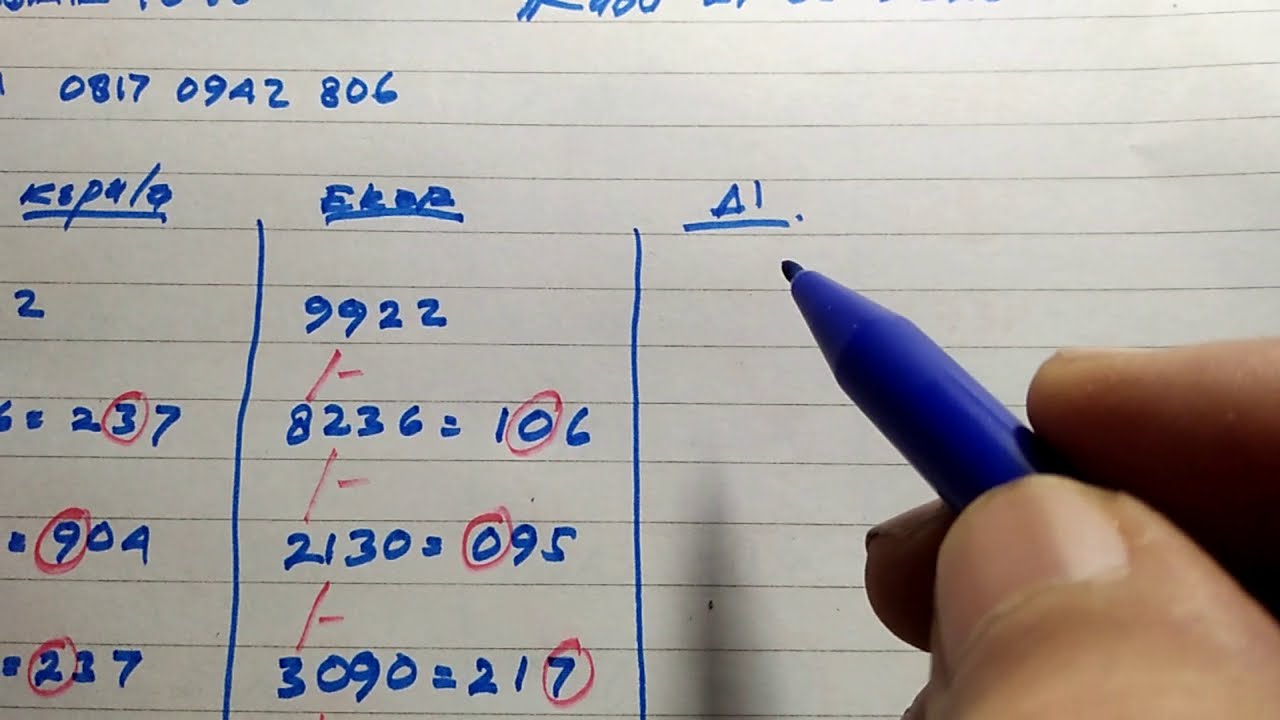 0817 0942 806
EKOR
AI.
2 9922
= 237 8236 = 106
= 904 2130 = 095
= 237 3090 = 217